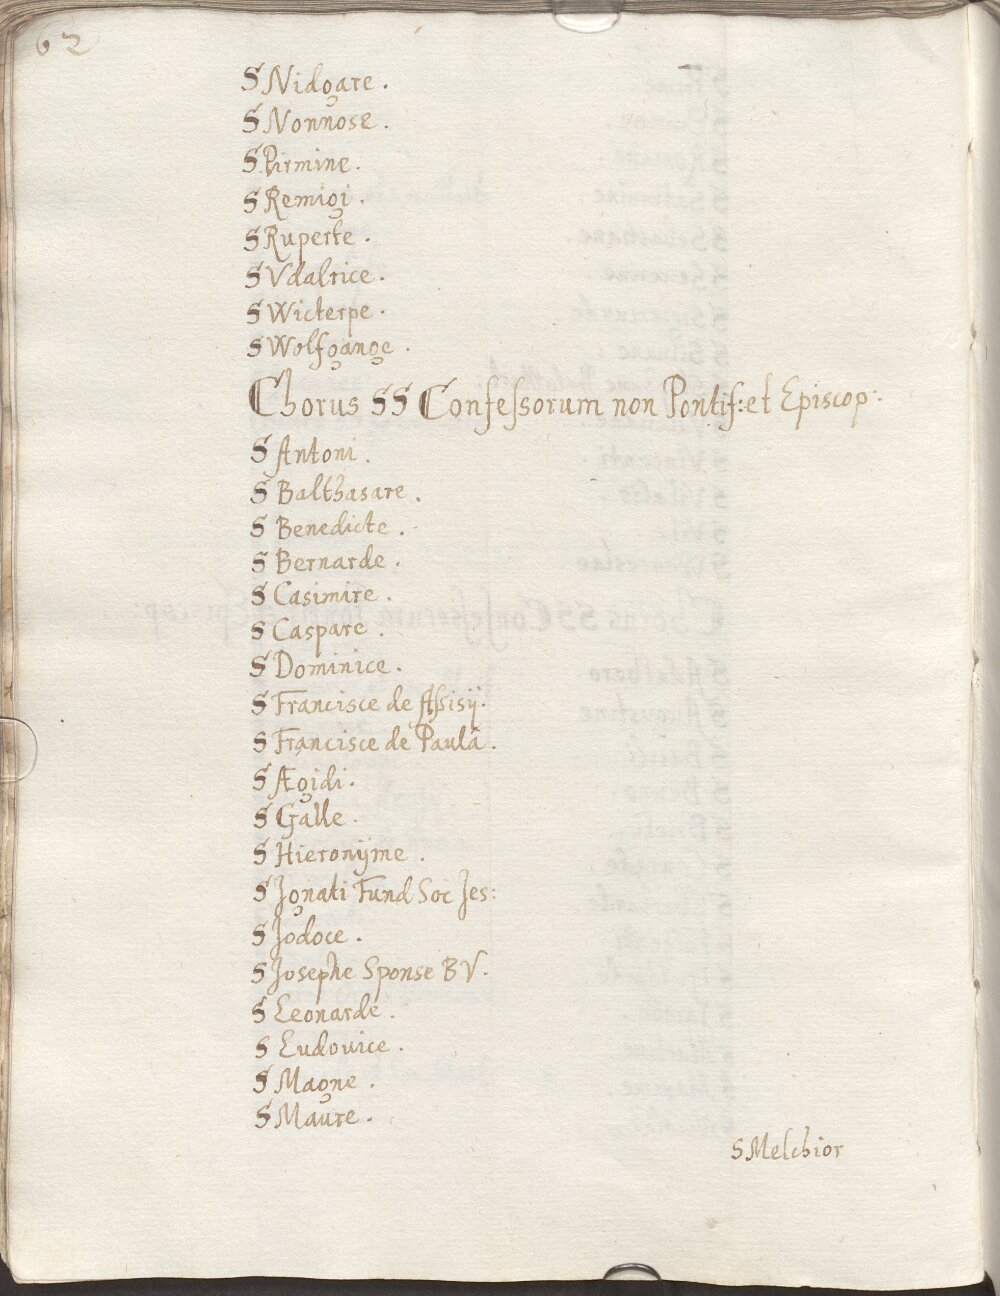 62
S Nidgare .
S Nonnose .
S Pirmine .
S Remigi .
S Ruperte .
S Vdalrice .
S Wicterpe .
S Wolfgange .
Chorus SS Confeſsorum non Pontif: et Episcop:
S Antoni .
S Balthasare .
S Benedicte .
S Bernarde .
S Casimire .
S Caspare .
S Dominice .
S Francisce de Aſsisÿ .
S Francisce de Paulâ .
S Ægidi .
S Galle .
S Hieronÿme .
S Jgnati Fund Soc Jes:
S Jodoce .
S Josephe Sponse B V .
S Leonarde .
S Ludouice .
S Magne .
S Maure .
S Melchior